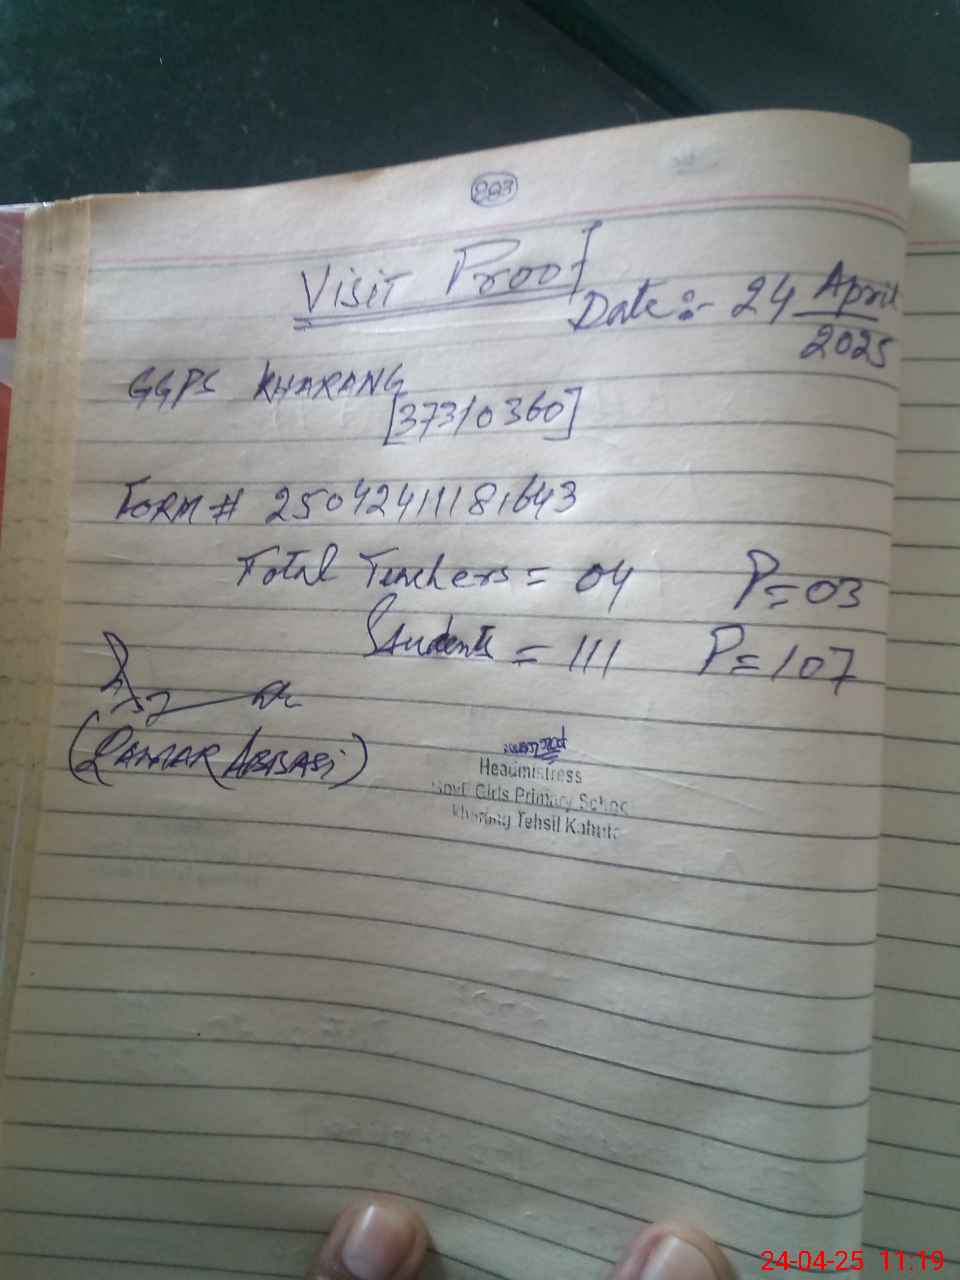 203
Visit Proof
Date:- 24 April
2025
GGPS KHARANG
[37310360]
FORM # 25042411181643
Total Teachers = 04 P=03
Students = 111 P=107
(QAMAR ABBASI)
Headmistress
Govt Girls Primary School
Kharang Tehsil Kahuta
24-04-25 11:19